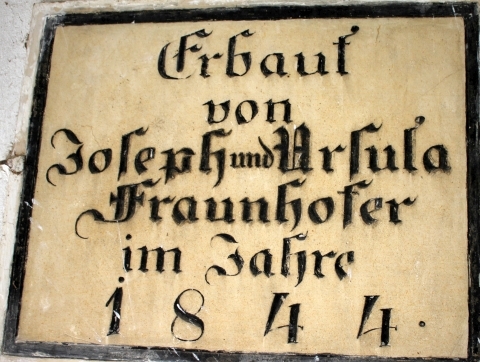 Erbaut
von
Joseph und Ursula
Fraunhofer
im Jahre
1844.